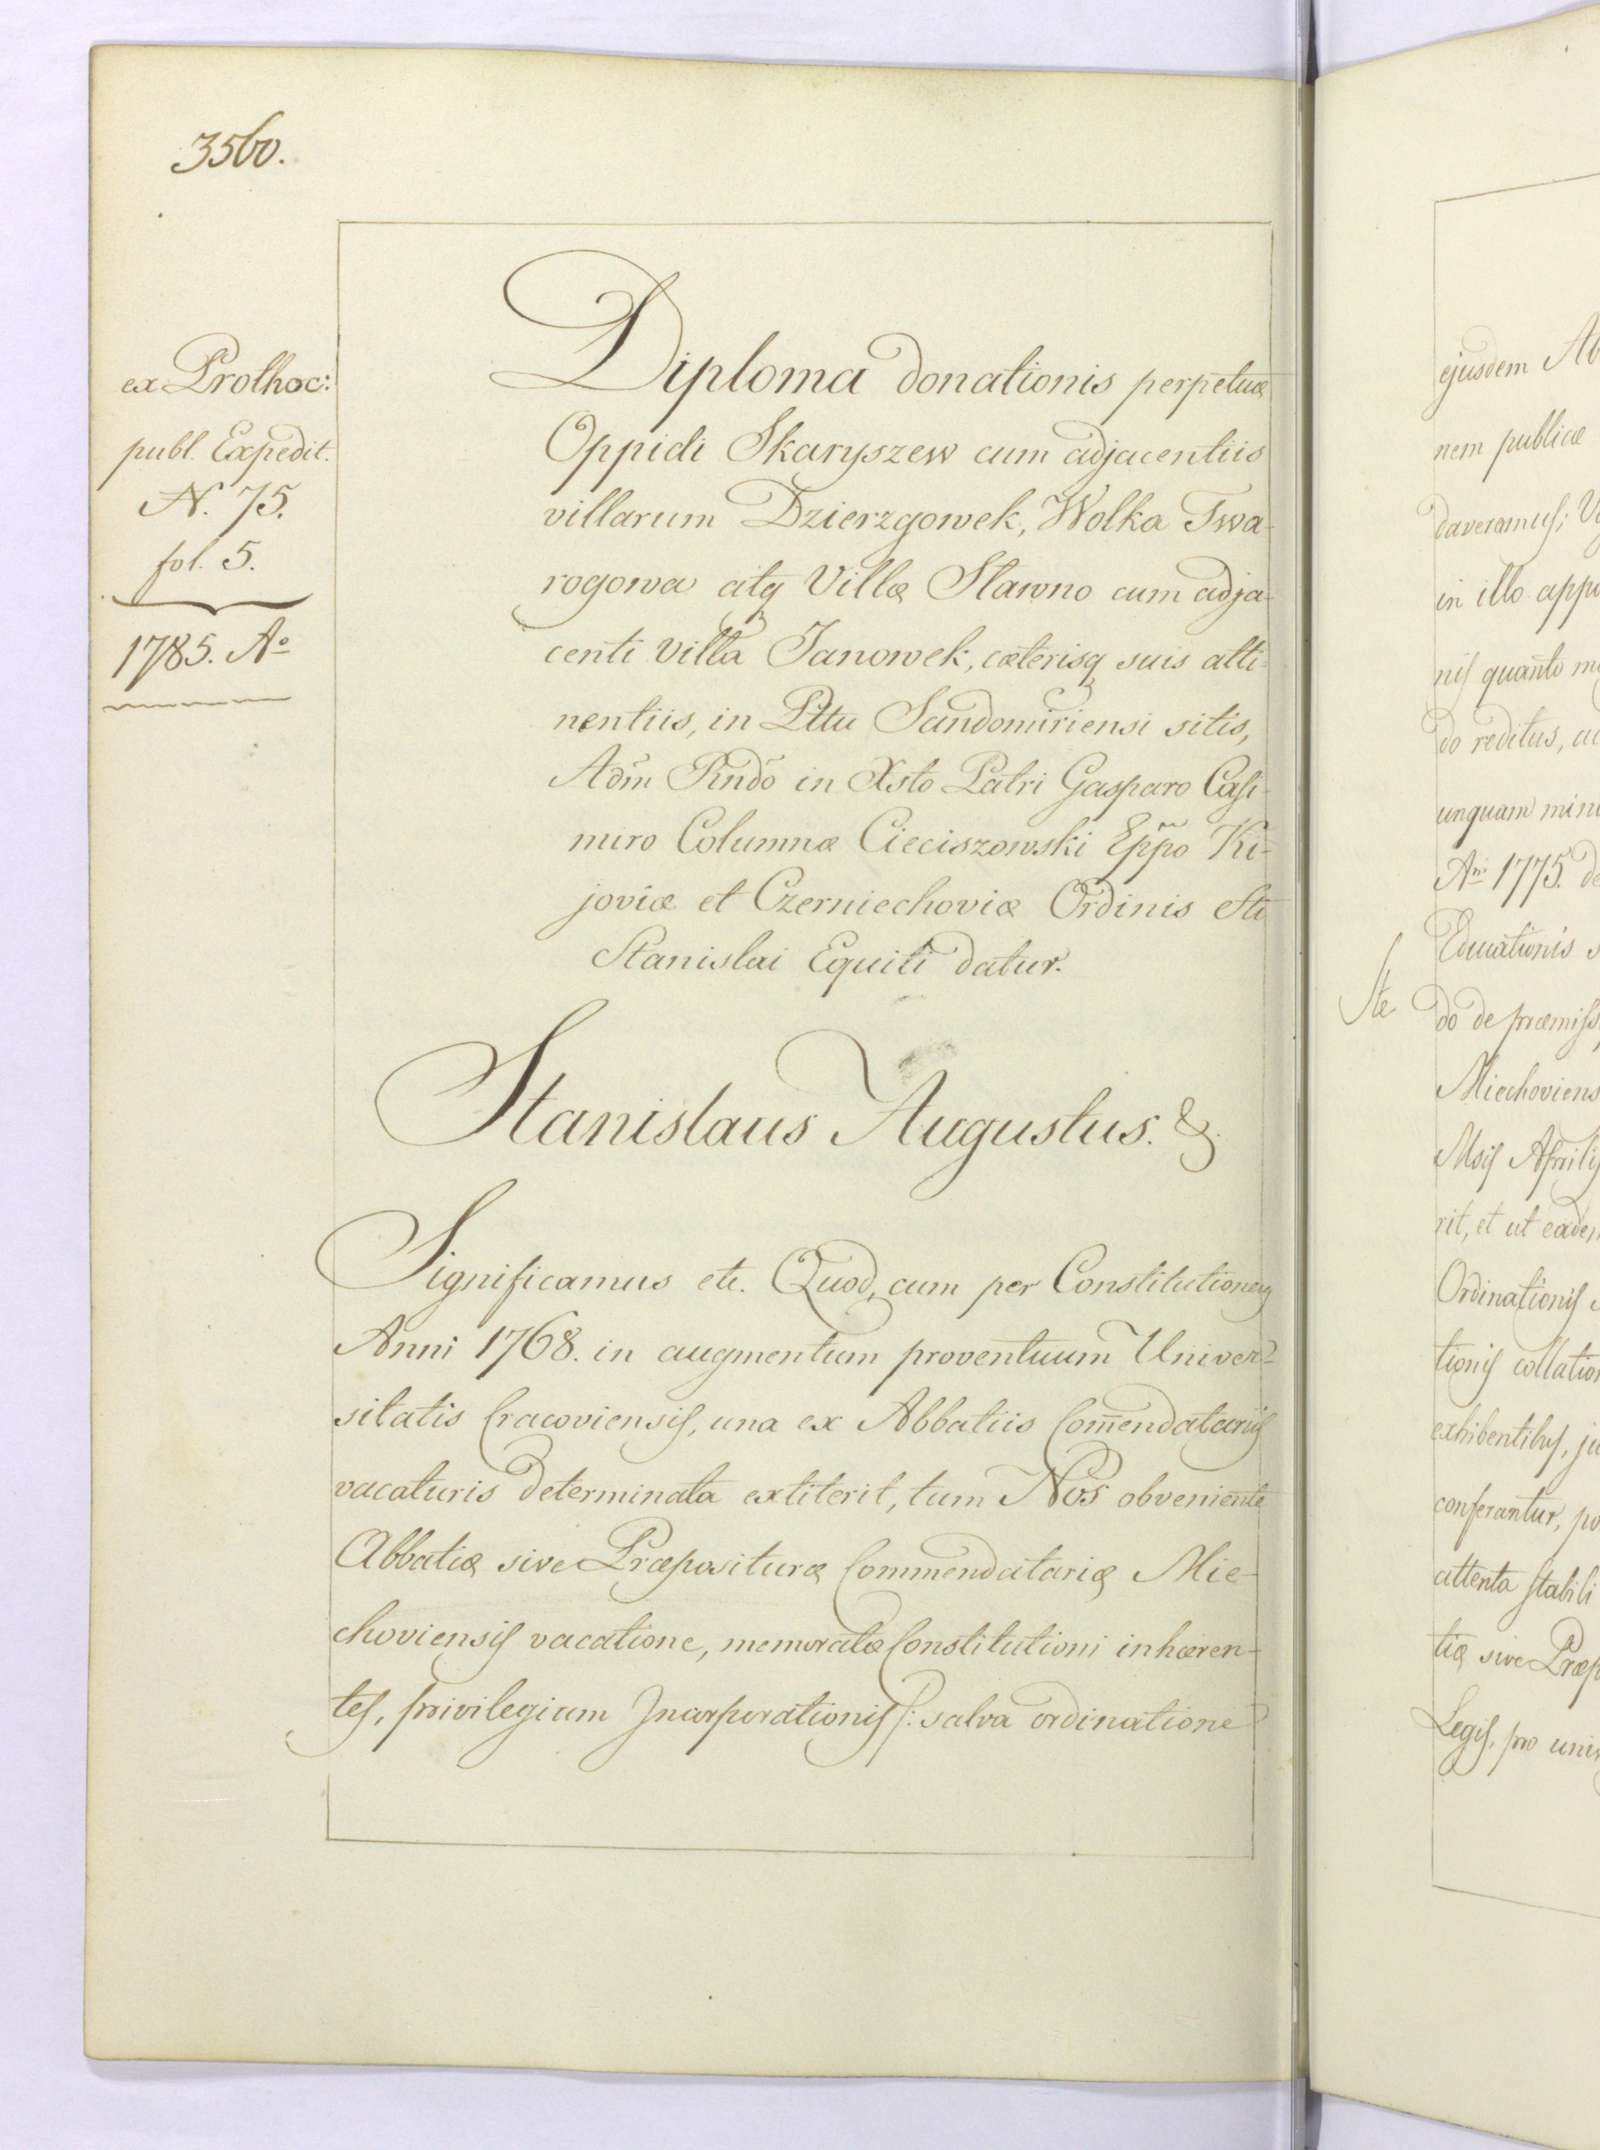 3560.
ex Prothoc:
publ. Expedit.
N. 75.
fol. 5.
1785. Aº
Diploma donationis perpetuæ
Oppidi Skaryszew cum adjacentiis
villarum Dzierzgowek, Wolka Twa-
rogowa atq Villæ Sławno cum adja-
centi villa Janowek, cæterisq suis atti-
nentiis, in Pttu Sandomiriensi sitis,
Adm Rndo in Xsto Patri Gasparo Casi-
miro Columnæ Cieciszowski Eppo Ki-
joviæ et Czerniechoviæ Ordinis Sti
Stanislai Equiti datur.
Stanislaus Augustus. &.
Significamus etc. Quod, cum per Constitutionem
Anni 1768. in augmentum proventuum Univer-
sitatis Cracoviensis, una ex Abbatiis Com̄endatariis
vacaturis determinata extiterit, tum Nos obveniente
Abbatiæ sive Præposituræ Commendatariæ Mie-
choviensis vacatione, memoratæ Constitutioni inhæren-
tes, privilegium Incorporationis /: salva ordinatione
ejusdem Ab
nem publicæ
daveramus; V
in illo app
nis quanto m
do reditus, ac
unquam min
Ani 1775. de
Educationis s
Ste
do de præmiss
Miechoviens
Msis Aprilis
rit, et ut eadem
Ordinationis
tionis collation
exhibentibus, ju
conferantur, po
attenta stabili
tiæ sive Præp
Legis, pro univ